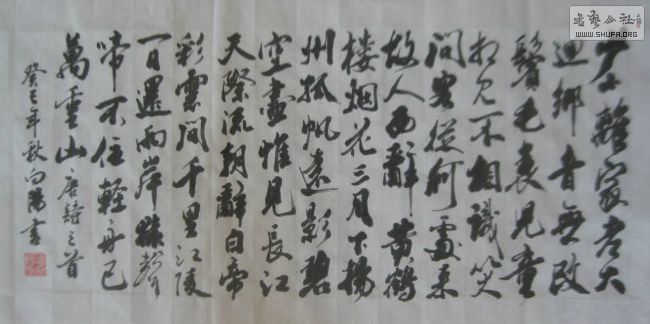 少小離家老大
迴鄉音無改
鬢毛衰兒童
相見不相識笑
問客從何處來
故人西辭黃鶴
楼烟花三月下揚
州孤帆遠影碧
空盡惟見長江
天際流朝辭白帝
彩雲間千里江陵
一日還兩岸猿聲
啼不住輕舟已
萬重山 唐詩三首
癸巳年秋向陽書
书艺公社
WWW.SHUFA.ORG